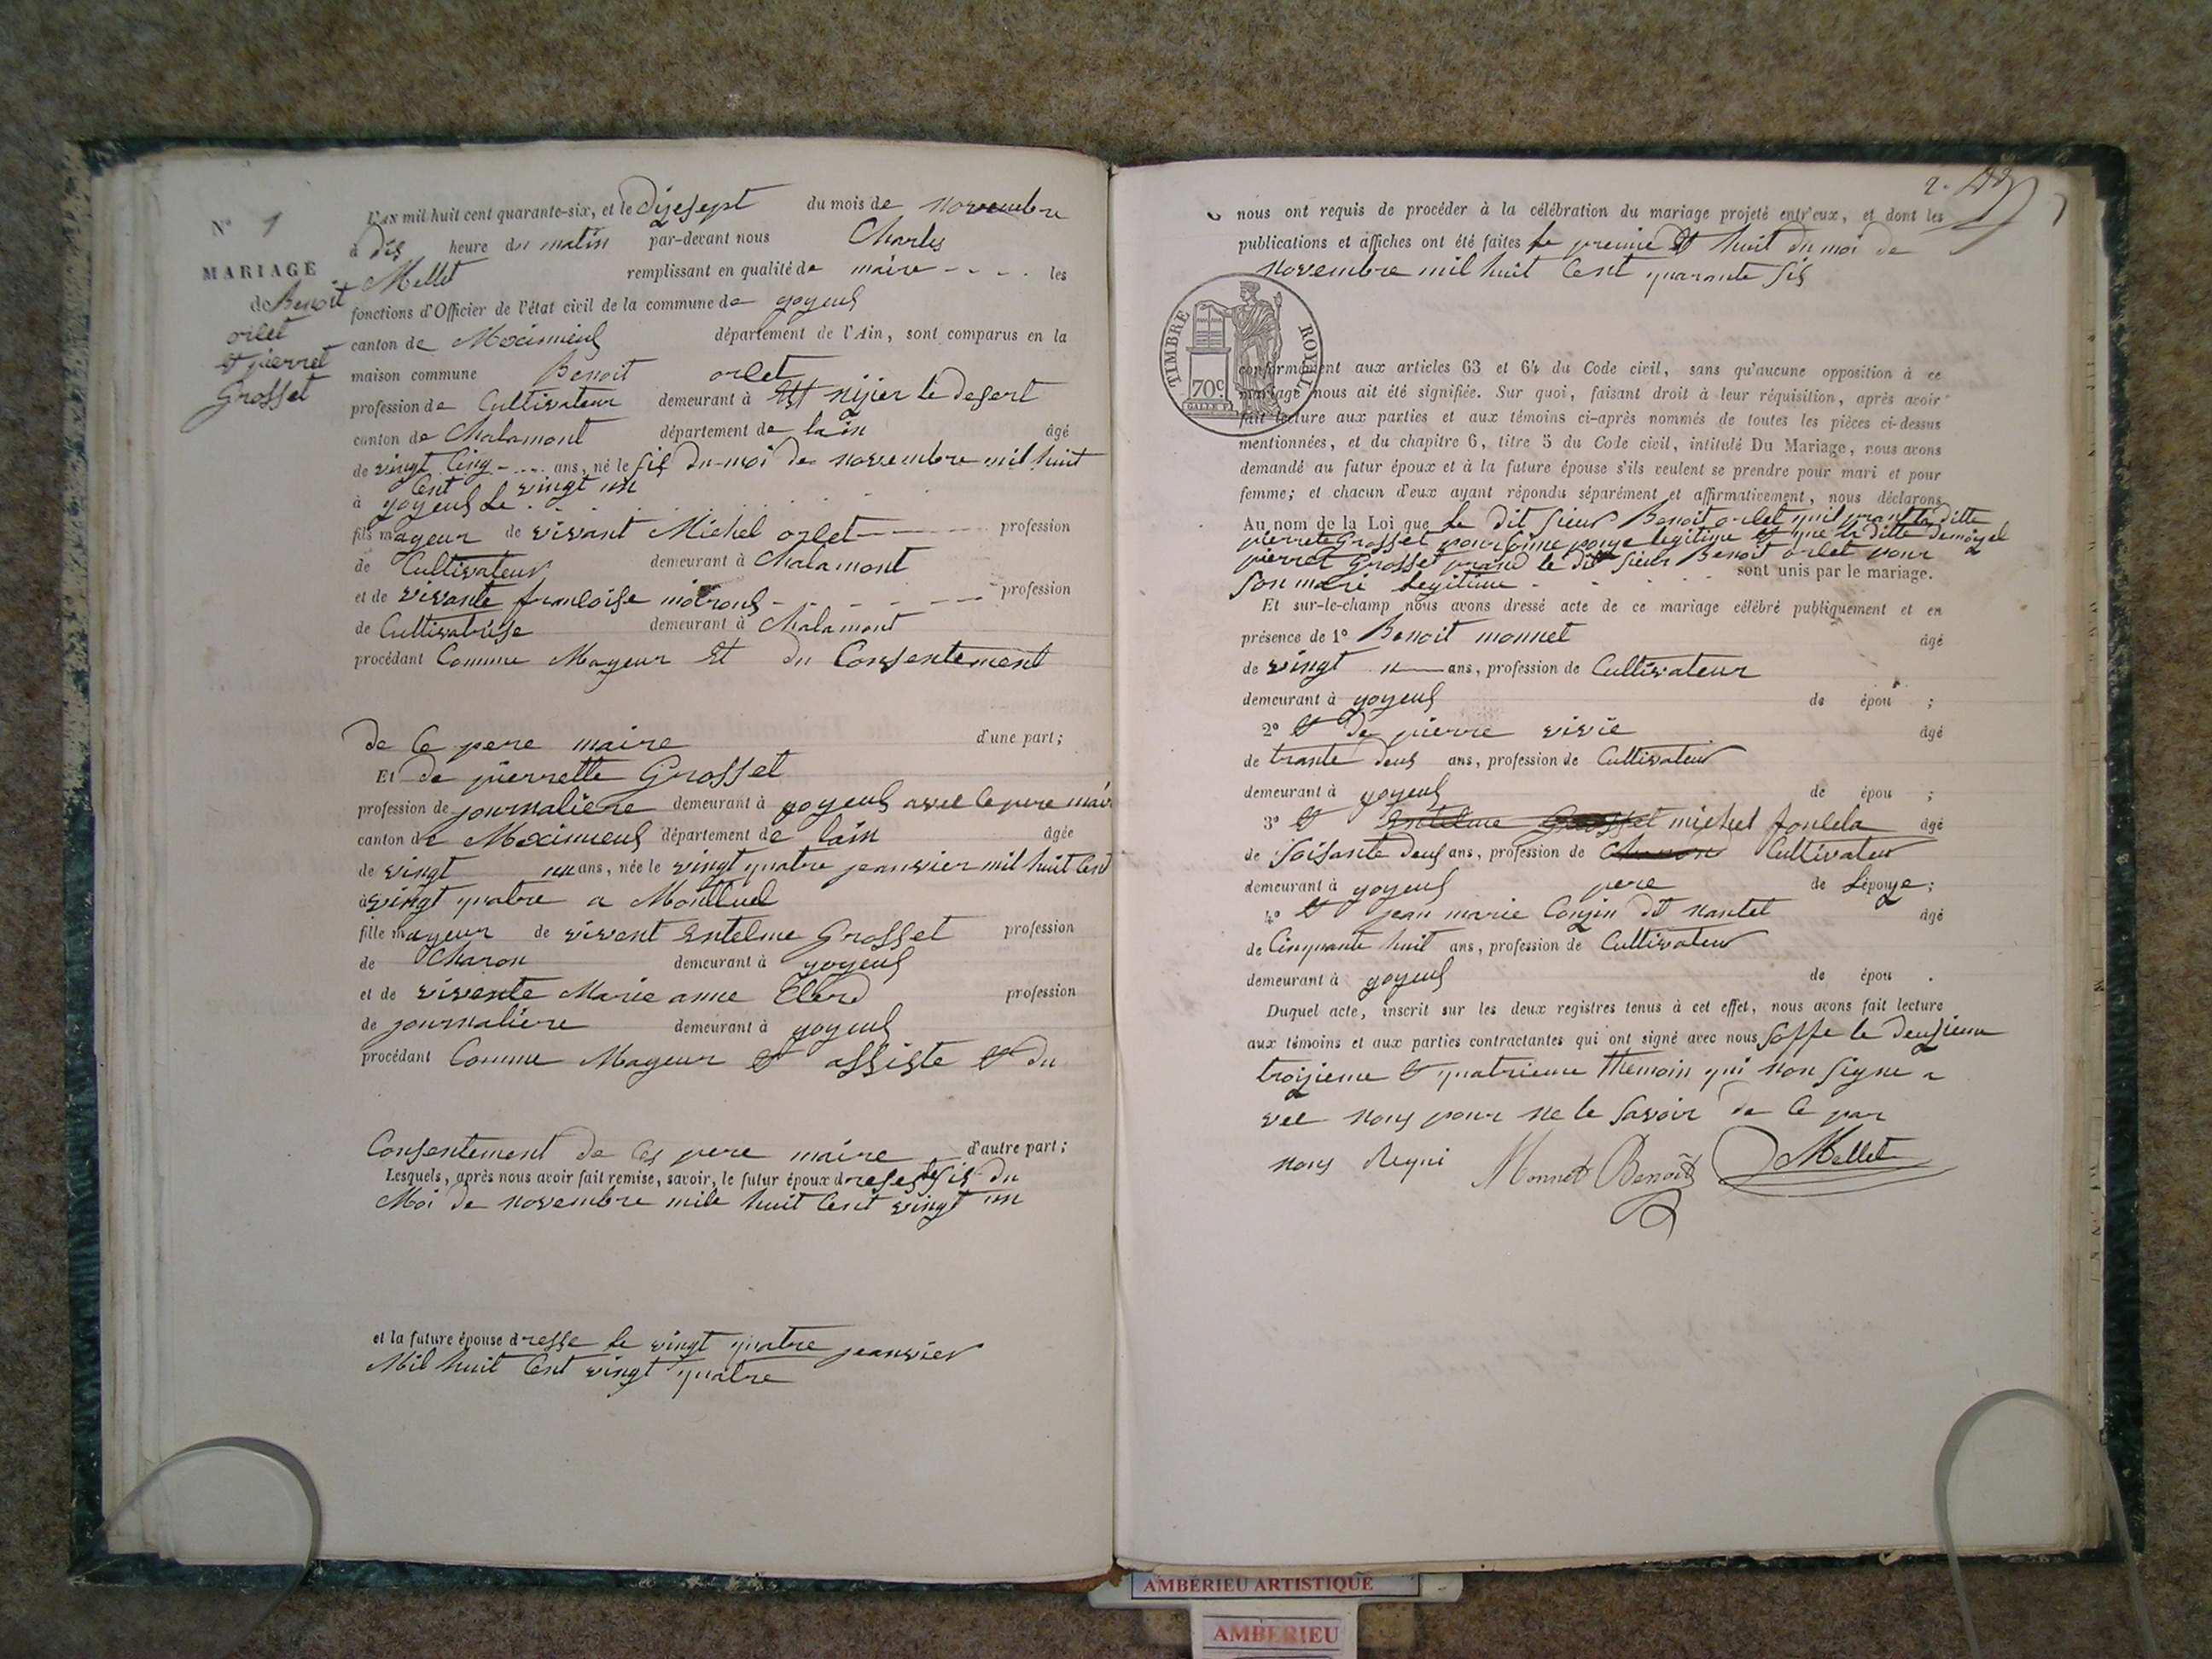 N° 1
MARIAGE
de Benoit
orlet
et pierret
Grosset
L'an mil huit cent quarante-six, et le dijesept du mois de novembre
à dis heure du matin par-devant nous Charles
Mellet remplissant en qualité de maire les
fonctions d'Officier de l'état civil de la commune de yoyeus
canton de Meximieus département de l'Ain, sont comparus en la
maison commune Benoit orlet
profession de Cultivateur demeurant à st nijier le desert
canton de Chalamont département de lain âgé
de vingt cinq ans, né le sis du moi de novembre mil huit
cent vingt un
à yoyeus le
fils mayeur de vivant Michel orlet profession
de Cultivateur demeurant à Chalamont
et de vivante francoise profession
de Cultivatrise demeurant à Chalamont
procédant Comme Mayeur et du Consentement
de ce pere maire d'une part;
Et de pierrette Grosset
profession de journaliere demeurant à yoyeus avec ce pere mair
canton de Meximieus département de lain âgée
de vingt ans, née le vingt quatre jeanvier mil huit cent
à vingt quatre a Montluel
fille mayeur de vivent Entelme Grosset profession
de Charon demeurant à yoyeus
et de vivente Marie anne profession
de journaliere demeurant à yoyeus
procédant Comme Mayeur et assiste et du
Consentement de ces pere maire d'autre part;
Lesquels, après nous avoir fait remise, savoir, le futur époux dreses le sis du
Moi de novembre mile huit cent vingt un
et la future épouse dresse le vingt quatre jeanvier
Mil huit cent vingt quatre
2.
nous ont requis de procéder à la célébration du mariage projeté entr'eux, et dont les
publications et affiches ont été faites le premie et huit du moi de
novembre mil huit cent quarante sis
TIMBRE ROYAL
70c
conformément aux articles 63 et 64 du Code civil, sans qu'aucune opposition à ce
mariage nous ait été signifiée. Sur quoi, faisant droit à leur réquisition, après avoir
fait lecture aux parties et aux témoins ci-après nommés de toutes les pièces ci-dessus
mentionnées, et du chapitre 6, titre 5 du Code civil, intitulé Du Mariage, nous avons
demandé au futur époux et à la future épouse s'ils veulent se prendre pour mari et pour
femme; et chacun d'eux ayant répondu séparément et affirmativement, nous déclarons
Au nom de la Loi que le dit sieur Benoit orlet quil prant la ditte
pierrete Grosset pour legitime et que la ditte demoisel
pierret Grosset prand le dit sieur Benoit orlet pour
son mari legitime sont unis par le mariage.
Et sur-le-champ nous avons dressé acte de ce mariage célébré publiquement et en
présence de 1° Benoit monnet âgé
de vingt ans, profession de Cultivateur
demeurant à yoyeus de épou ;
2° et de pierre vivie âgé
de trante deus ans, profession de Cultivateur
demeurant à yoyeus de épou ;
3° et Entelme Grosset michel âgé
de soisante deus ans, profession de Charon Cultivateur
demeurant à yoyeus pere de Lépouje;
4° et jean marie Conjin dit nantet âgé
de Cinquante huit ans, profession de Cultivateur
demeurant à yoyeus de épou .
Duquel acte, inscrit sur les deux registres tenus à cet effet, nous avons fait lecture
aux témoins et aux parties contractantes qui ont signé avec nous soffe le deusieme
troijieme et quatrieme themoin qui non signe a
vec nous pour ne le savoir de ce par
nous Requi Monnet Benoit Mellet
AMBÉRIEU ARTISTIQUE
AMBERIEU